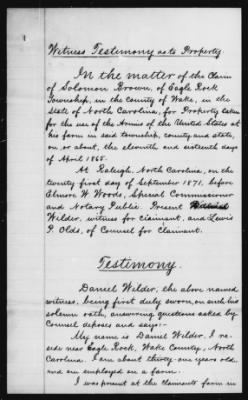 Witness Testimony as to Property
In the matter of the Claim
of Solomon Brown, of Eagle Rock
Township, in the County of Wake, in the
State of North Carolina, for Property taken
for the use of the Armies of the United States at
his farm in said township, county and state,
on or about, the eleventh and sixteenth days
of April 1865.
At Raleigh, North Carolina, on the
twenty first day of September 1871, before
Elmore W. Woods, Special Commissioner
and Notary Public. Present
Wilder, witness for claimant, and Lewis
P. Olds, of Counsel for Claimant.
Testimony.
Daniel Wilder, the above named
witness, being first duly sworn, on and his
solemn oath, answering questions asked by
Counsel deposes and says:-
My name is Daniel Wilder. I re-
side near Eagle Rock, Wake County, North
Carolina. I am about thirty-one years old,
and am employed on a farm.
I was present at the claimants farm in